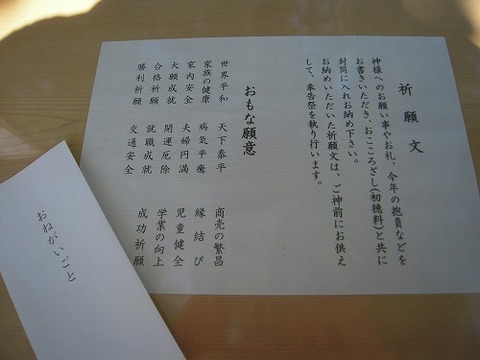 祈願文
神様へのお願い事やお札、今年の抱負などを
お書きいただき、おこころざし(初穂料)と共に
封筒に入れお納め下さい。
お納めいただいた祈願文は、ご神前にお供え
して、奉告祭を執り行います。
おもな願意
世界平和 天下泰平 商売の繁昌
家族の健康 病気平癒 縁結び
家内安全 夫婦円満 児童健全
大願成就 開運厄除 学業の向上
合格祈願 就職成就 成功祈願
勝利祈願 交通安全
おねがいごと